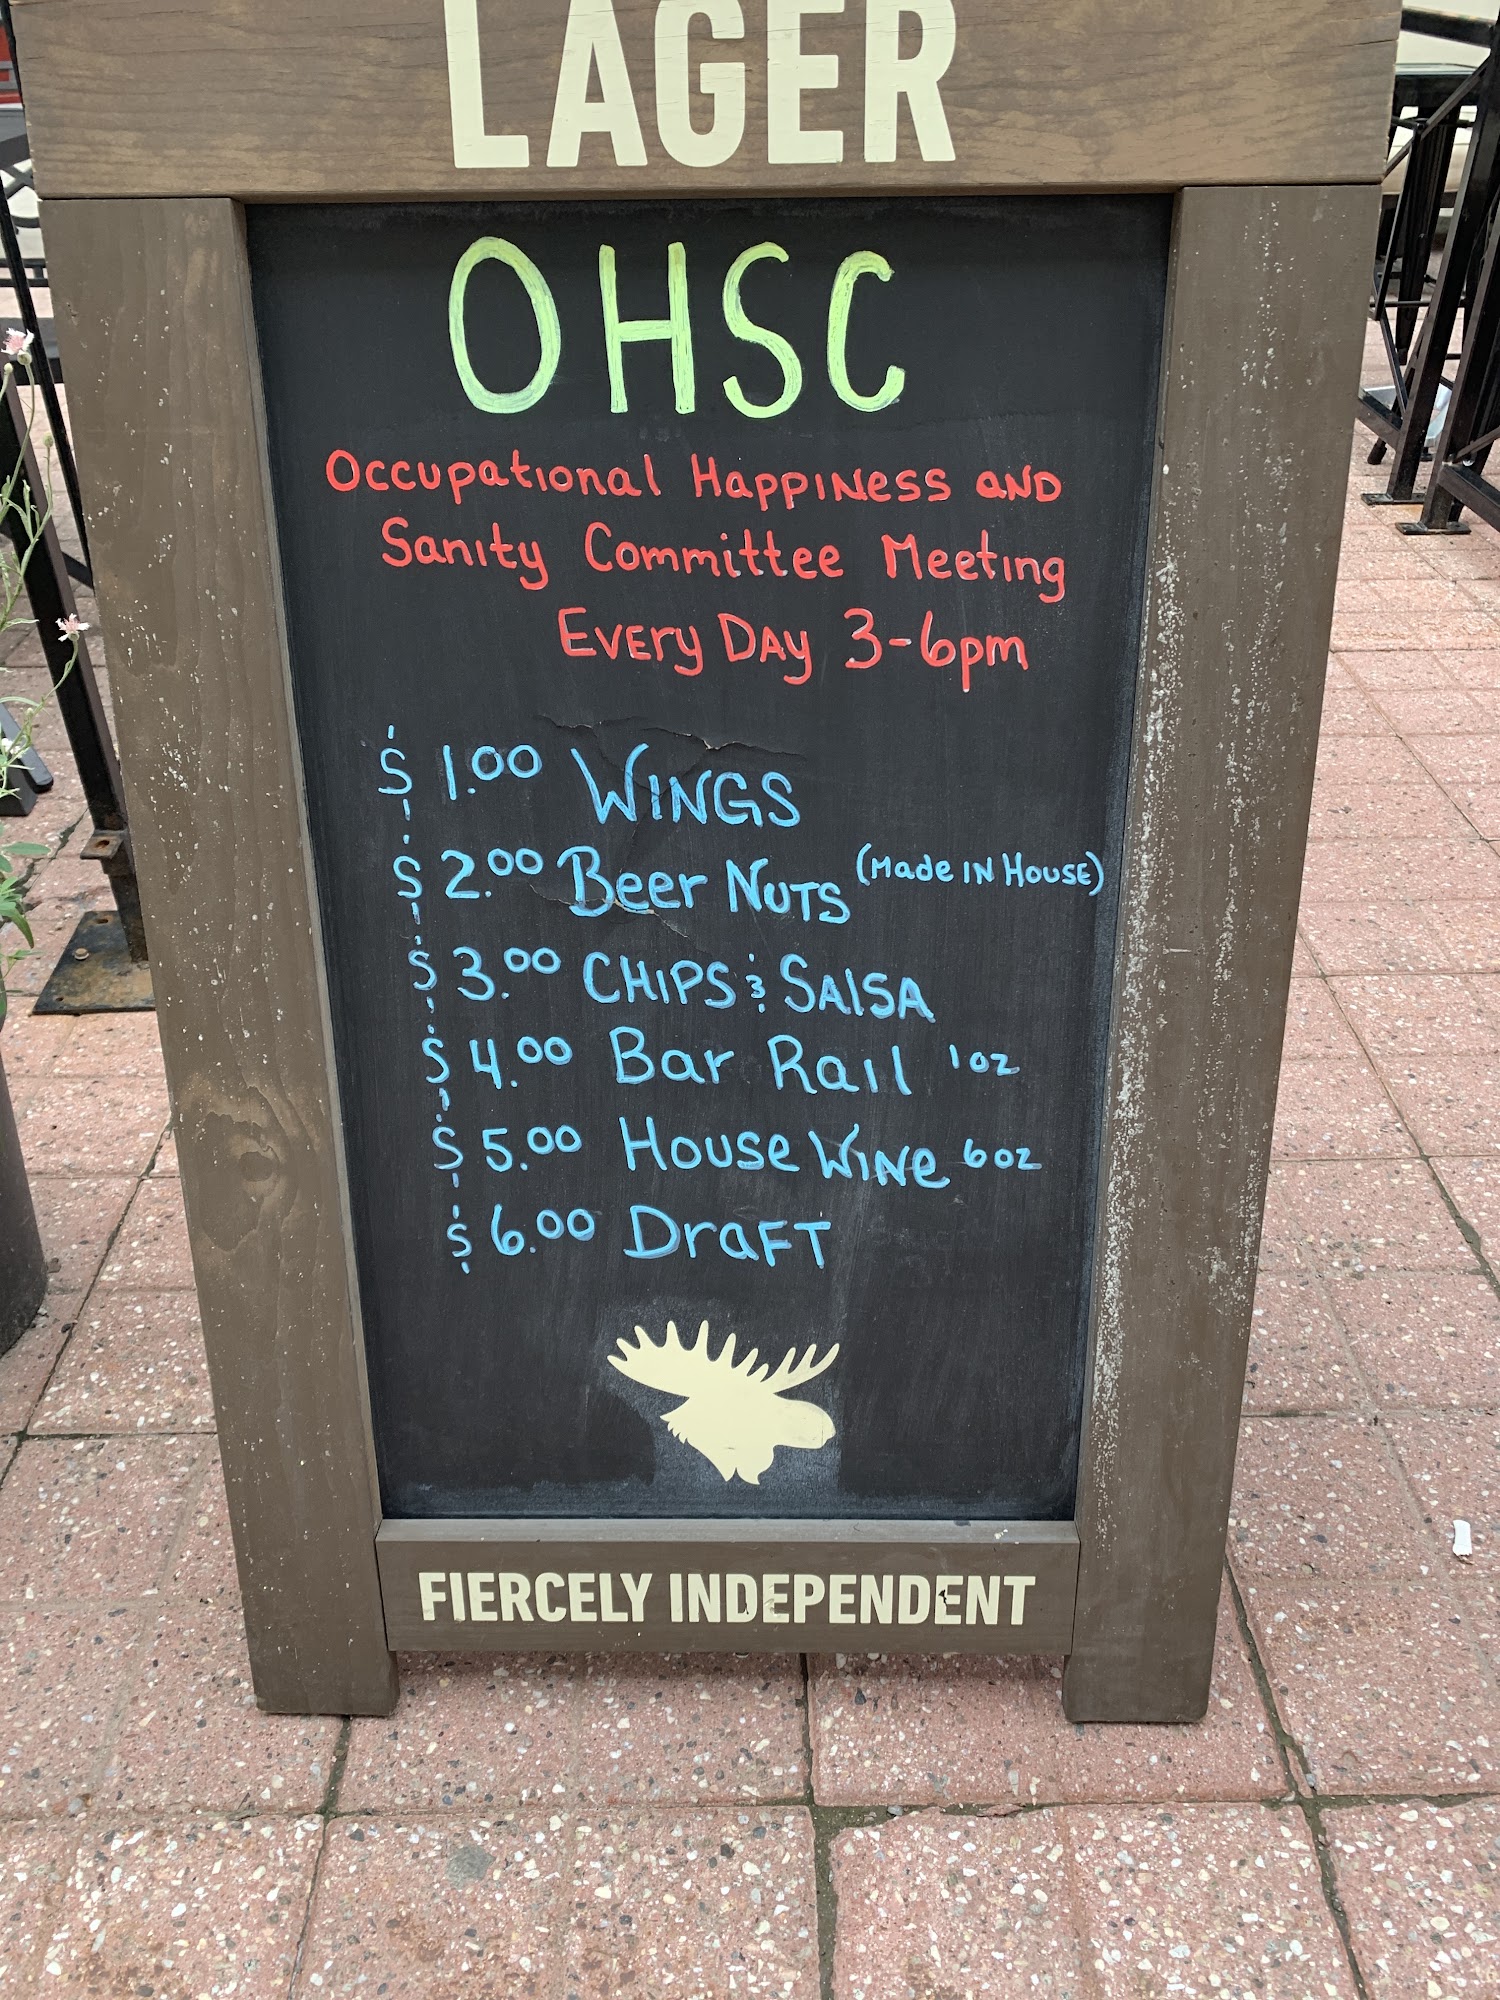 LAGER
OHSC
Occupational Happiness and
Sanity Committee Meeting
Every Day 3-6pm
$1.00 Wings
$2.00 Beer Nuts (Made in House)
$3.00 Chips & Salsa
$4.00 Bar Rail 1oz
$5.00 House Wine 6oz
$6.00 Draft
FIERCELY INDEPENDENT